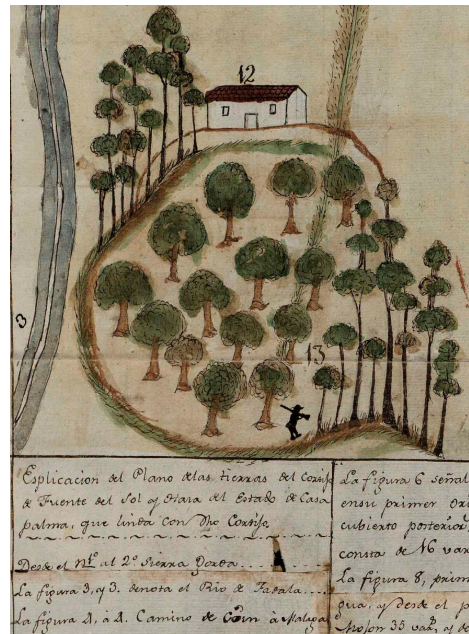 12
3
13
Esplicacion del Plano de las tierras del Cortijo
de Fuente del Sol y Haza del Estado de Casa
palma, que linda con Dho Cortijo
Desde el nº 1º al 2º Sierra Gorda
La figura 3, y 3. denota el Rio de Fadala
La figura 4, à 4. Camino de Coin à Malaga
La figura 6 señal
en su primer ori
cubierto posterior
consta de 16 var
La figura 8, prim
gua, y desde el p
son 33 varˢ, y de